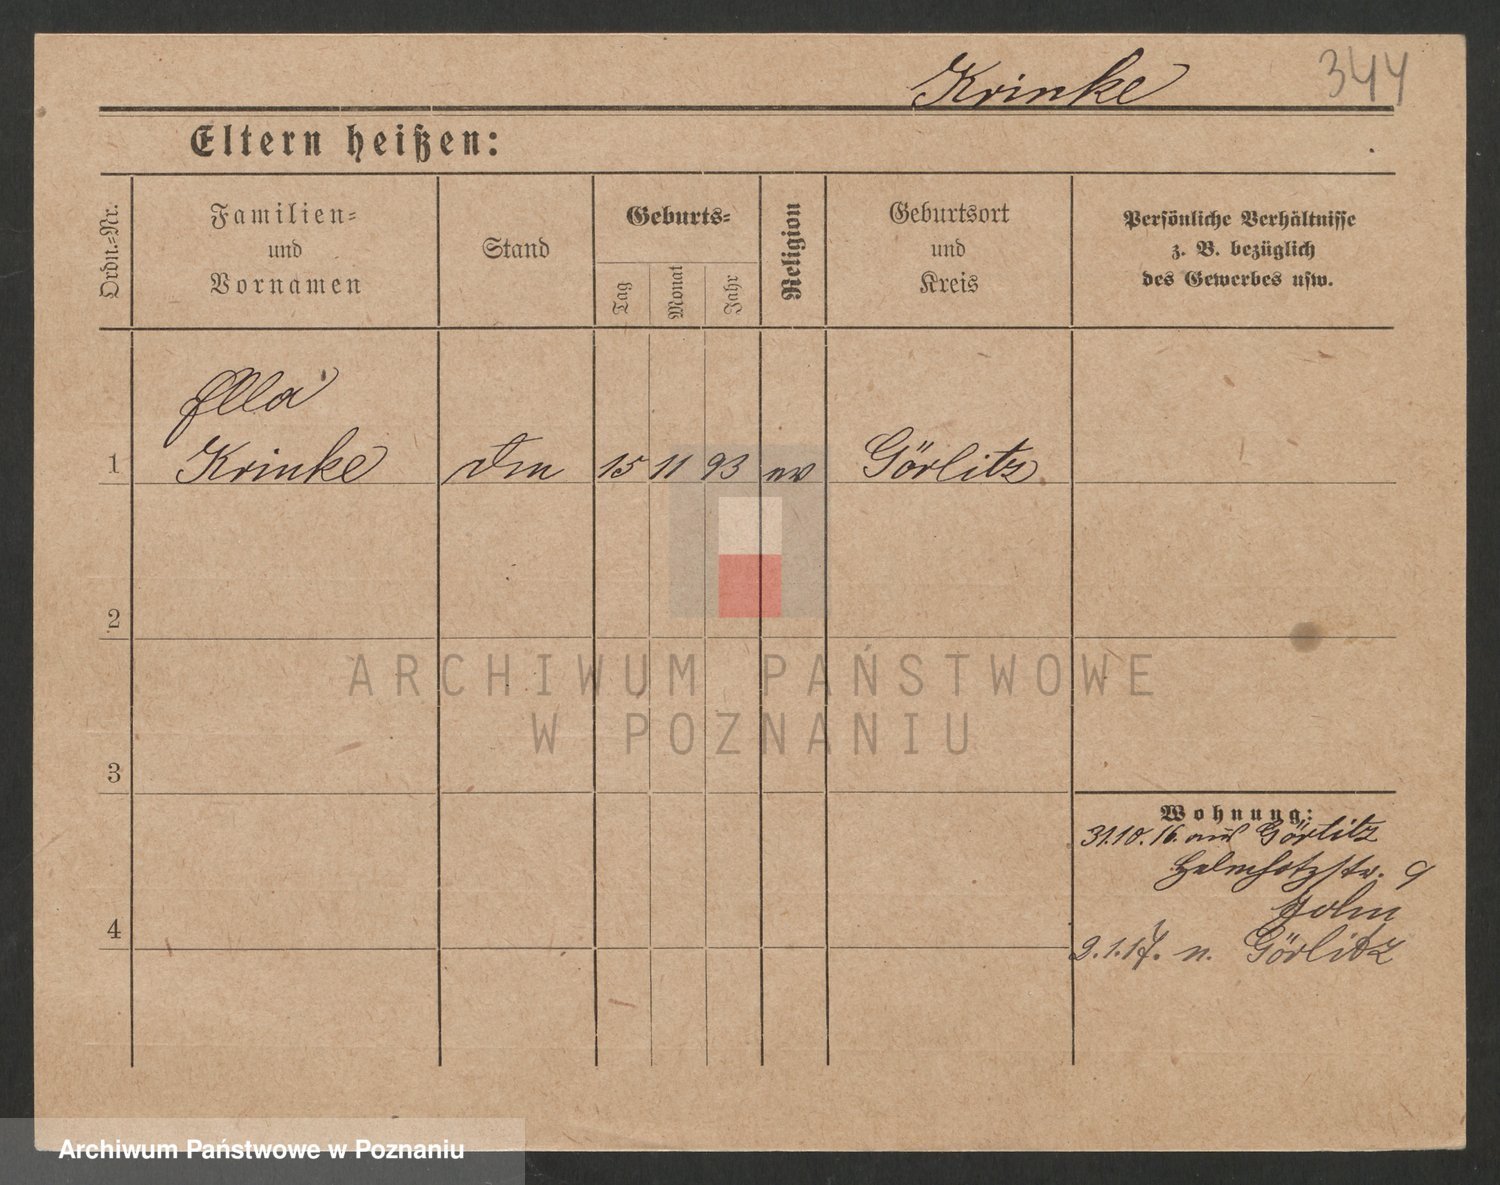 Krinke 344
Eltern heißen:
Ordn.=Nr.
Familien=
und
Vornamen
Stand
Geburts=
Tag
Monat
Jahr
Religion
Geburtsort
und
Kreis
Persönliche Verhältnisse
z. B. bezüglich
des Gewerbes usw.
Ella
1 Krinke 15 11 93 ev Görlitz
2
3
4
Wohnung:
31.10.16. aus Görlitz
Helmholtzstr. 9
John
2.1.17. n. Görlitz
ARCHIWUM PAŃSTWOWE
W POZNANIU
Archiwum Państwowe w Poznaniu